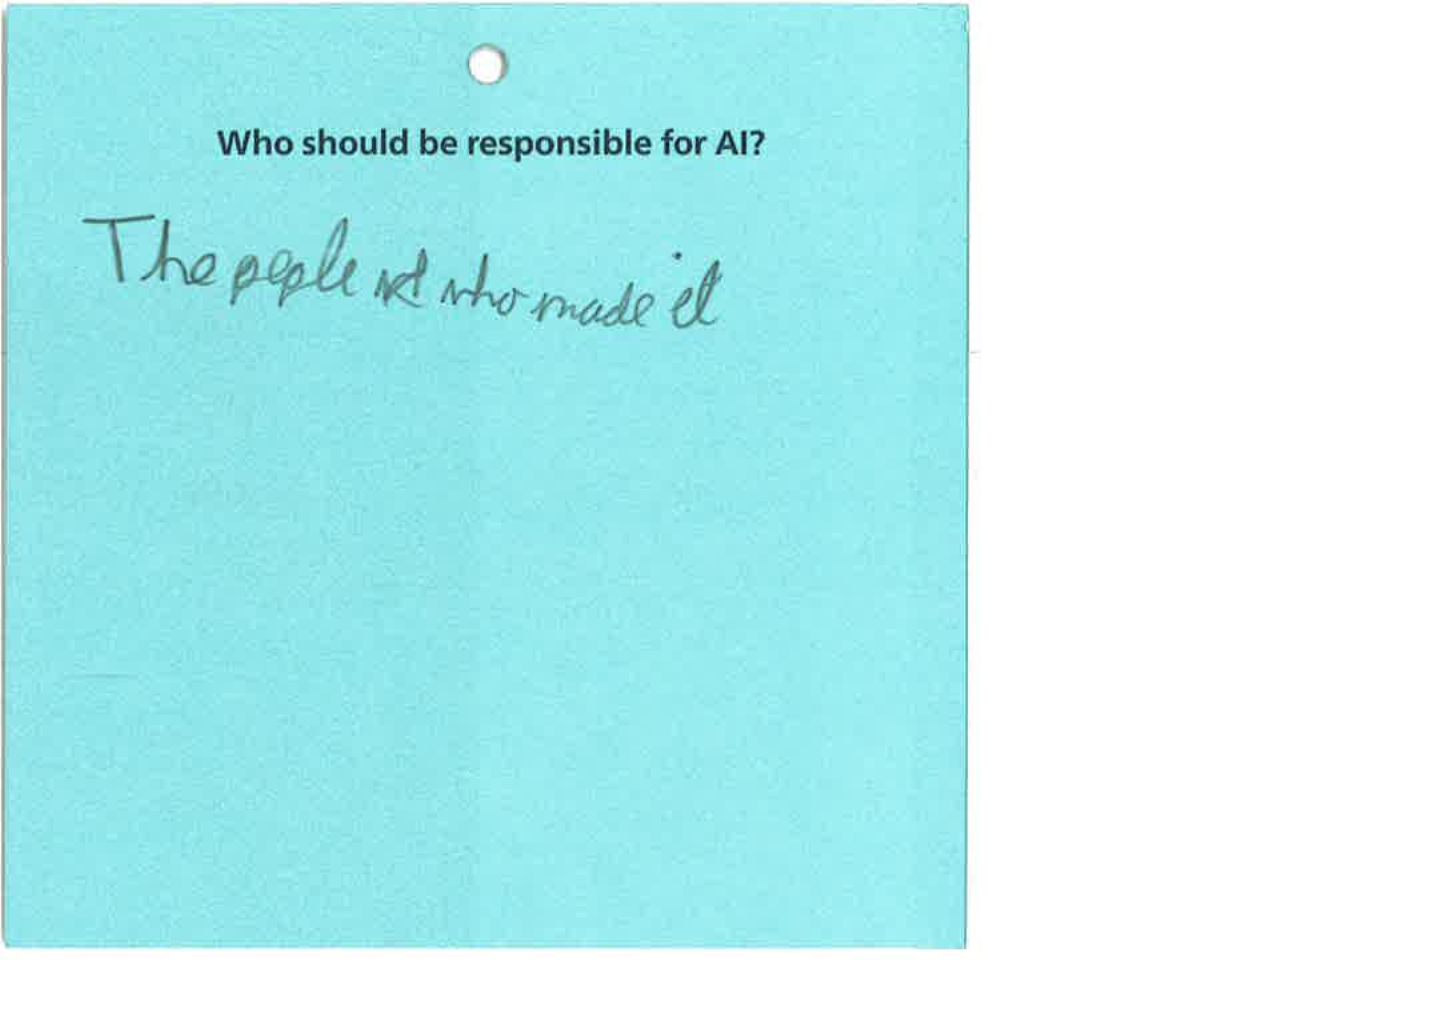 Who should be responsible for AI?
The people who made it